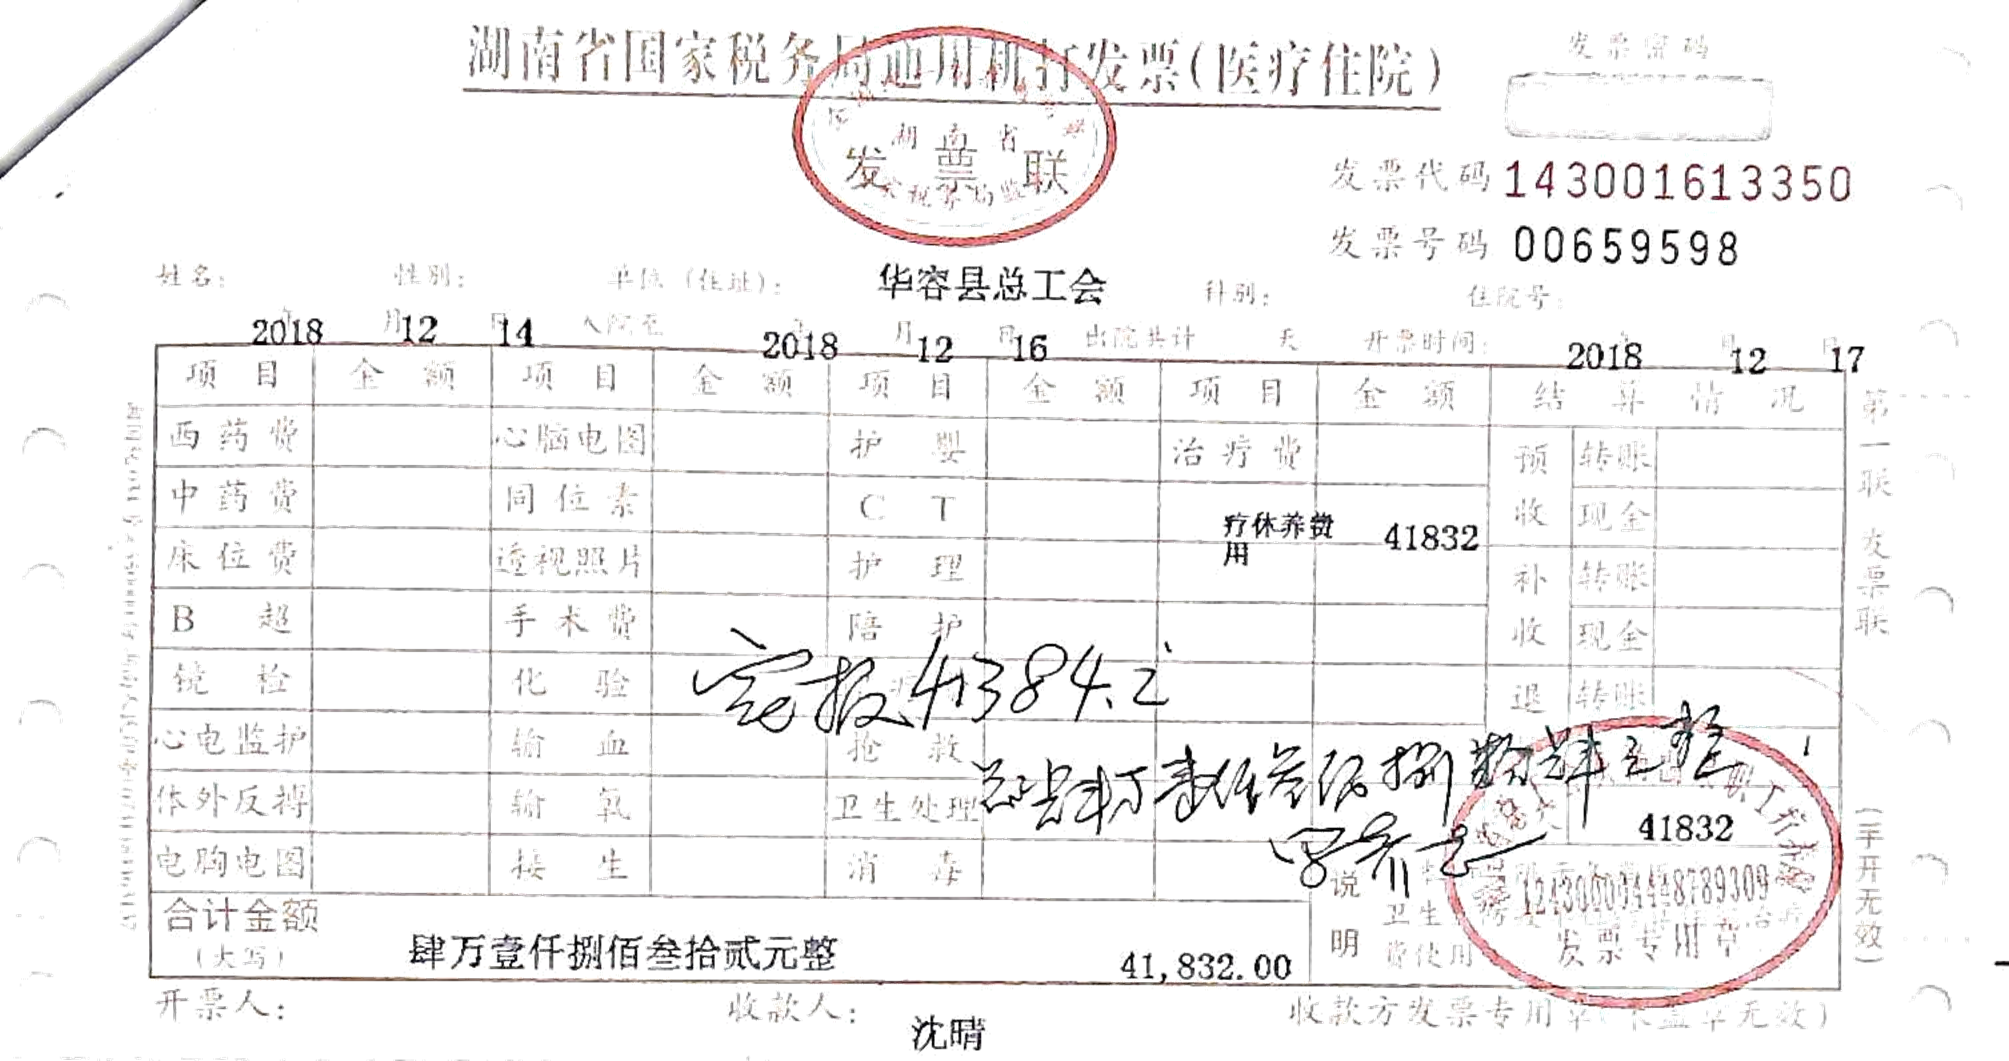 湖南省国家税务局通用机打发票(医疗住院)
发票密码
湖南省
发票联
国家税务局监
发票代码 143001613350
发票号码 00659598
姓名: 性别: 单位(住址): 华容县总工会 科别: 住院号:
2018 年 12 月 14 日 入院至 2018 年 12 月 16 日 出院共计 天 开票时间: 2018 年 12 月 17 日
项目 金额 项目 金额 项目 金额 项目 金额 结算情况
西药费 心脑电图 护婴 治疗费 预收 转账
中药费 同位素 CT 疗休养费用 41832 现金
床位费 透视照片 护理 补收 转账
B超 手术费 陪护 现金
镜检 化验 退 转账
实报41384.2
心电监护 输血 抢救
体外反搏 输氧 卫生处理 41832
电胸电图 接生 消毒 说明
卫生
费使用
124300004448789309
发票专用章
合计金额
(大写) 肆万壹仟捌佰叁拾贰元整 41,832.00
开票人: 收款人: 沈晴 收款方发票专用章(不盖章无效)
第一联 发票联
(手开无效)